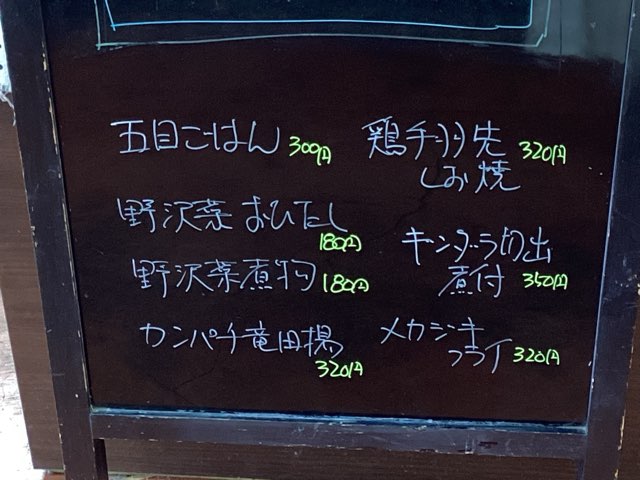 五目ごはん 300円
野沢菜おひたし
180円
野沢菜煮物 180円
カンパチ竜田揚
320円
鶏手羽先 320円
しお焼
ギンダラ切出
煮付 350円
メカジキ
フライ 320円